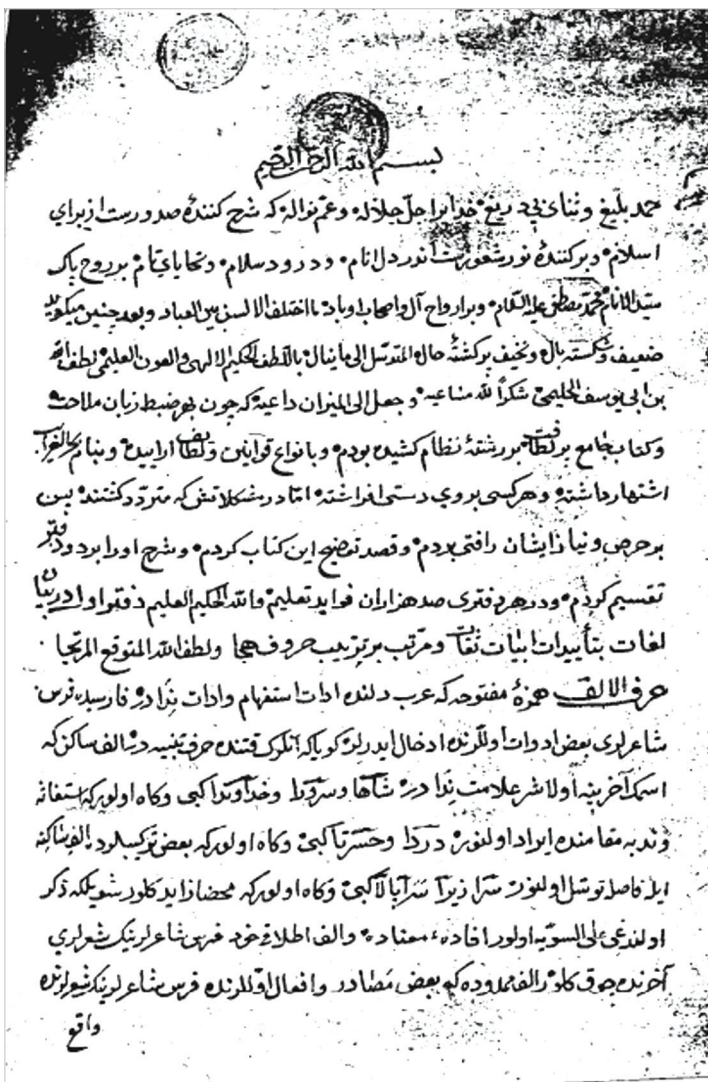 بسم الله الرحمن الرحيم
حمد بليغ و ثنای بی دريغ خدايرا جلّ جلاله وعمّ نواله كه شرح كنندهٔ صدورست از برای
اسلام و پر كنندهٔ نور شعورست اندر دل انام و درود سلام و تحايای تام بر روح پاک
سيّد الانام محمّد مصطفى عليه السّلام و بر ارواح آل واصحاب اوباد ما اختلف الالسن بين العباد و بعد چنين ميكويد
ضعيف و شكسته بال و نحيف بركشتهٔ حال المتوسّل الى ما ينال باللطف الحكيم الالهی والعون العليمی لطف الله
بن ابی يوسف الحليمی شكراً لله مساعيه و جعل الى الميزان داعيه كه چون بهر ضبط زبان ملاحت
و كتاب جامع پر لطافت بر رشتهٔ نظام كشيده بودم و بانواع قوانين و لطايف اراييده و بنام بحر الغرايب
اشتهار داشته و هر كسی بروی دستی افراشته امّا در مشكلاتش كه متردّد كشتند پس
بر حرص و نياز ايشان رافتی بردم و قصد توضيح اين كتاب كردم و شرح اورا بر دو دفتر
تقسيم كردم و در هر دفتری صد هزاران فوايد تعليم والله الحكيم العليم دفتر اوّل در بيان
لغات بتأييدات ابيات ثقات و مرتب بر ترتيب حروف هجا و لطف الله المتوقع المرتجا
حرف الالف همزهٔ مفتوحه كه عرب دلنده ادات استفهام وادات ندا در فارسيده فرس
شاعرلری بعض ادوات اوللرنده ادخال ايدرلر كويا كه انلرک قتنده حرف تنبيه در الف ساكن كه
اسمك آخرينه اولاشر علامت ندا در شاها و سرورا و خداوندا كبی و كاه اولور كه استغاثه
و ندبه مقامنده ايراد اولنور دردا و حسرتا كبی و كاه اولور كه بعض تركيبلرده الف ساكنه
ايله فاصل توسّل اولنور سرا زيرا سرا بالا كبی و كاه اولور كه محضا زايد كلور شويلكه ذكر
اولندغی على السويه اولور افادهٔ معناده والف اطلاقی خود فرس شاعرلرينک شعرلری
آخرنده چوق كلور الف ممدوده كه بعض مصادر و افعال اوّللرنده فرس شاعرلرينک شعرلرنده
واقع